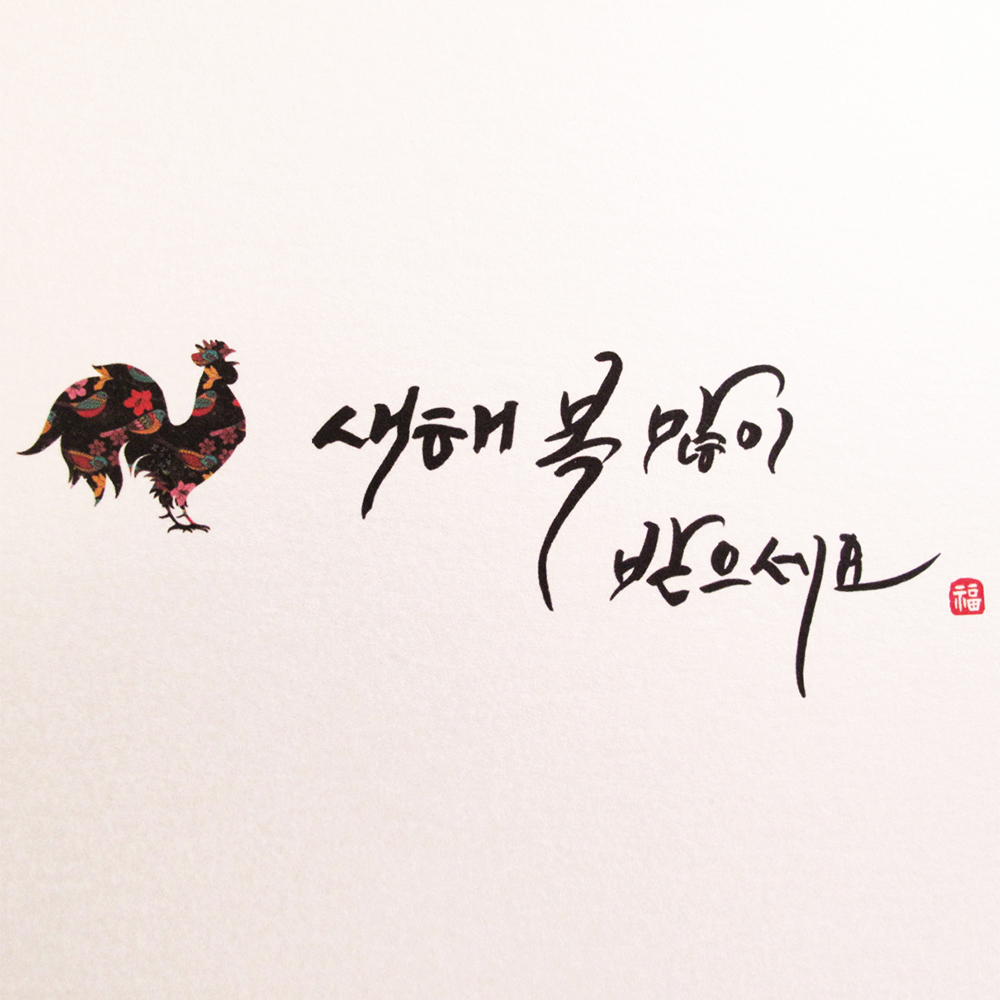 새해 복 많이
받으세요
福